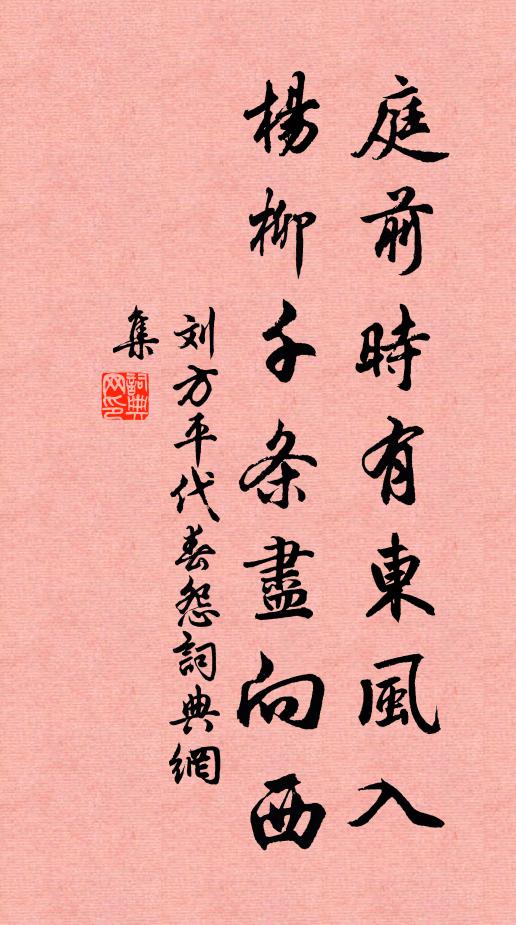 庭前時有東風入
楊柳千条盡向西
刘方平代春怨詞典網
集
詞典網印